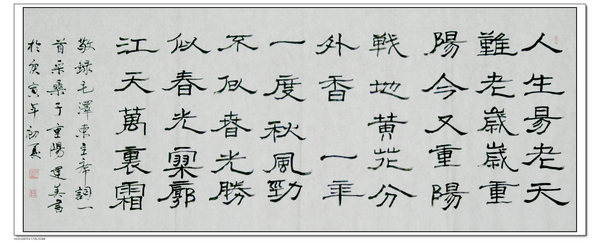 人生易老天
難老歲歲重
陽今又重陽
戰地黄花分
外香 一年
一度秋風勁
不似春光勝
似春光寥廓
江天萬裏霜
敬録毛澤東主席詞一
首采桑子重陽運美書
於庚寅年初夏